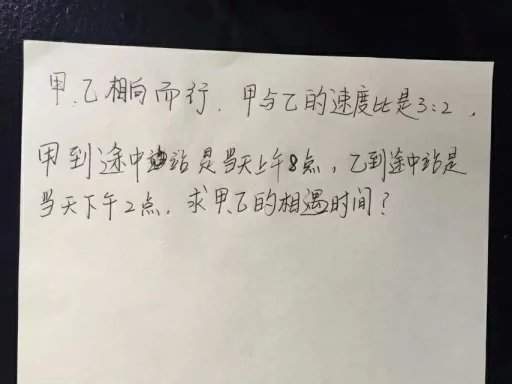 甲、乙相向而行，甲与乙的速度比是3:2，
甲到途中站是当天上午8点，乙到途中站是
当天下午2点，求甲、乙的相遇时间？